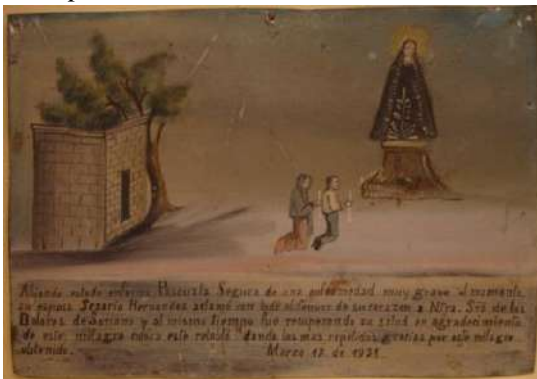 Abiendo estado enferma Pascuala Segura de una enfermedad muy grave al momento
su esposo Sesario Hernandes aclamó con todo el fervor de su corazon a Ntra. Srá. de los
Dolores de Soriano y al mismo tiempo fue recuperando su salud en agradecimiento
de este milagro coloca este retablo dando las mas repetidas gracias por este milagro
obtenido. Marzo 18 de 1921.